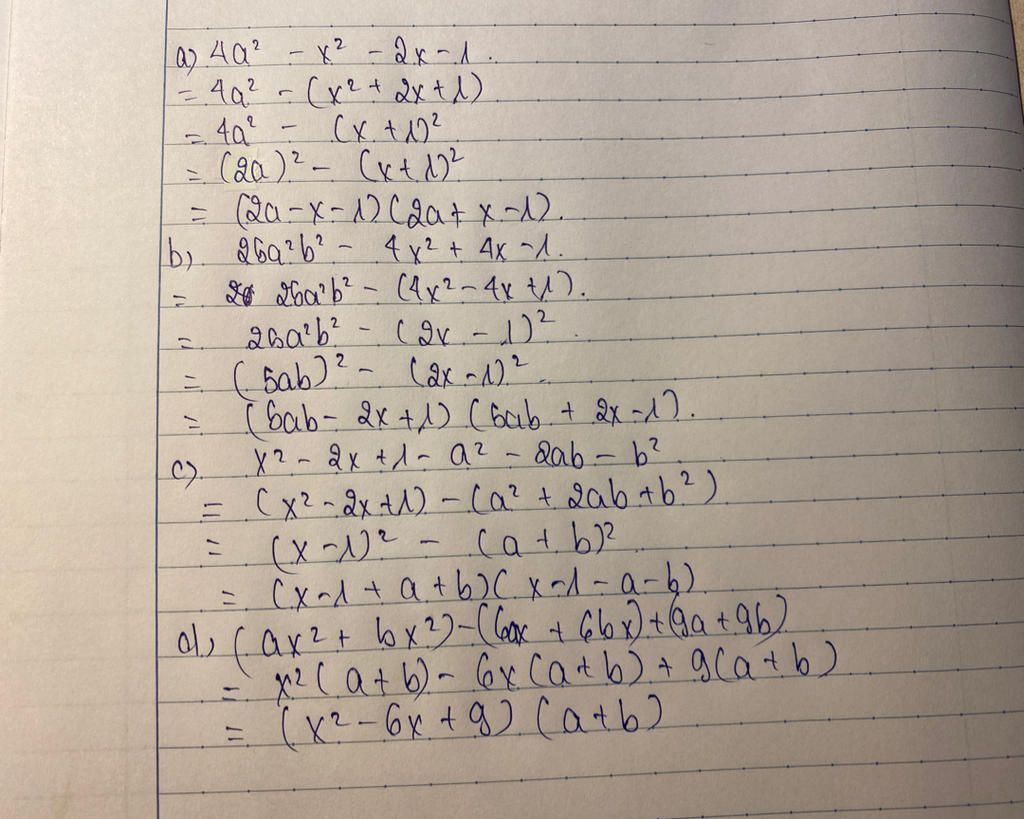 a) 4a² - x² - 2x - 1.
= 4a² - (x² + 2x + 1)
= 4a² - (x + 1)²
= (2a)² - (x + 1)²
= (2a - x - 1)(2a + x - 1).
b) 25a²b² - 4x² + 4x - 1.
= 25a²b² - (4x² - 4x + 1).
= 25a²b² - (2x - 1)²
= (5ab)² - (2x - 1)²
= (5ab - 2x + 1)(5ab + 2x - 1).
c) x² - 2x + 1 - a² - 2ab - b²
= (x² - 2x + 1) - (a² + 2ab + b²)
= (x - 1)² - (a + b)²
= (x - 1 + a + b)(x - 1 - a - b)
d) (ax² + bx²) - (6ax + 6bx) + (9a + 9b)
= x²(a + b) - 6x(a + b) + 9(a + b)
= (x² - 6x + 9)(a + b)